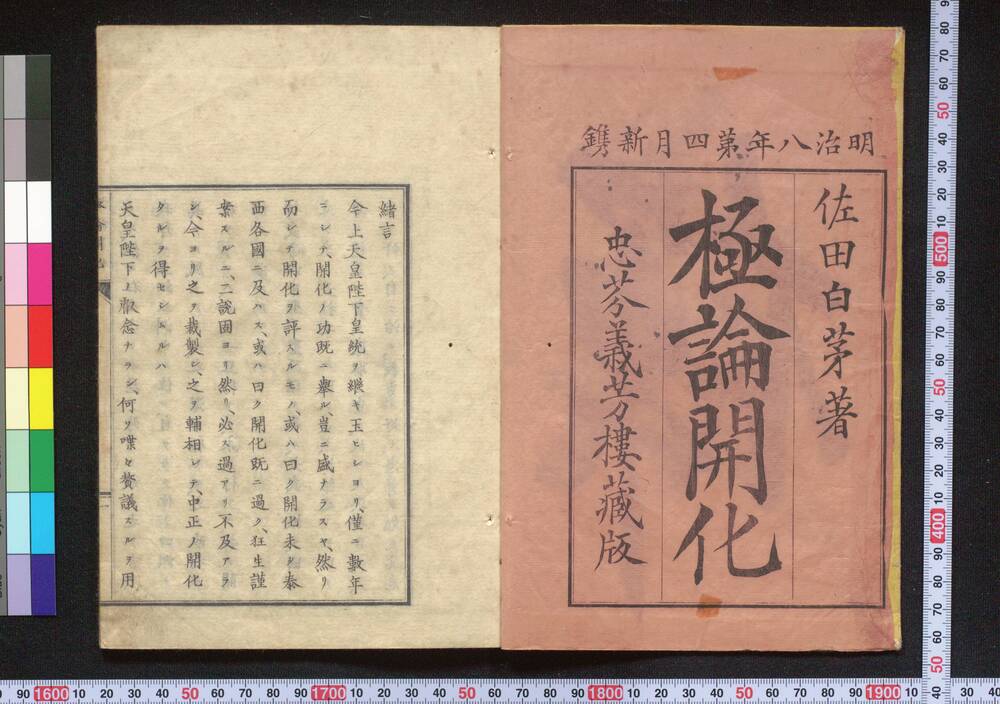 明治八年第四月新鐫
佐田白茅著
極論開化
忠芬義芳樓藏版
緒言
今上天皇陛下皇統ヲ繼ギ玉ヒシヨリ、僅ニ數年
ニシテ、開化ノ功既ニ擧ル、豈ニ盛ナラスヤ、然リ
而シテ開化ヲ評スルモノ、或ハ曰ク開化未タ泰
西各國ニ及ハス、或ハ曰ク開化既ニ過ク、狂生謹
案スルニ、二説固ヨリ然リ、必ス過アリ不及アラ
シ、今ヨリ之ヲ裁製シ、之ヲ輔相シテ、中正ノ開化
タルヲ得セシムルハ
天皇陛下ノ叡念ナラン、何ソ喋々贅議スルヲ用